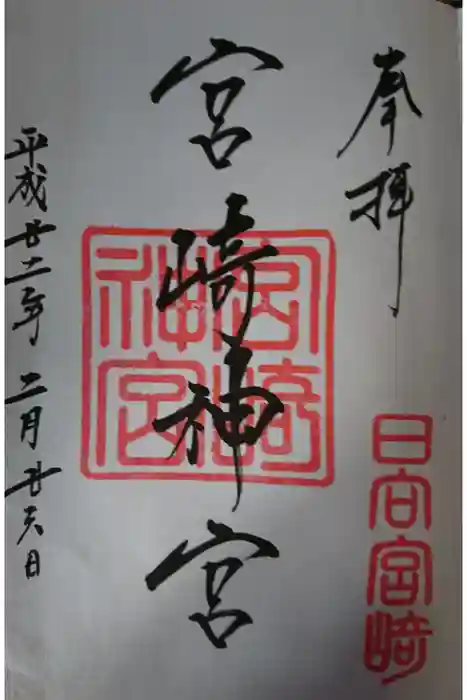 奉拝
日向宮崎
宮崎神宮
宮崎神宮
平成廿二年二月廿六日